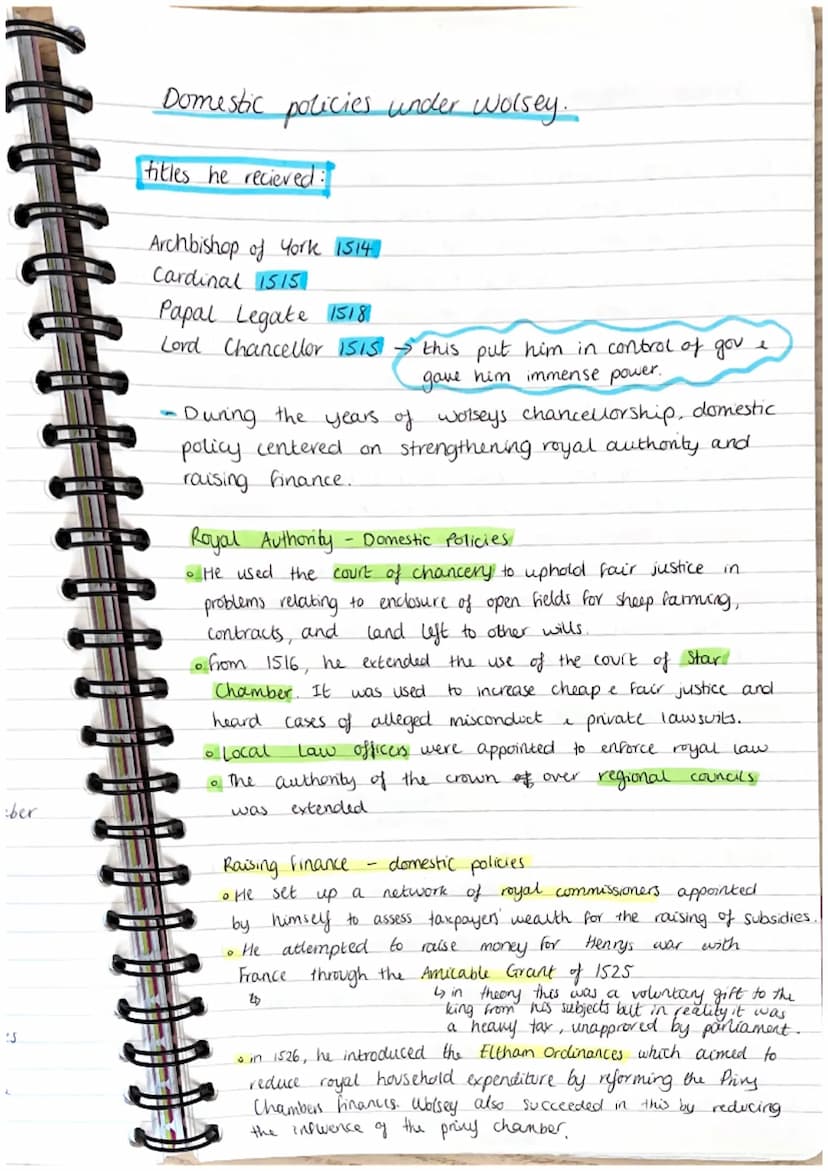 Domestic policies under Wolsey.
titles he recieved:
Archbishop of York 1514
Cardinal 1515
Papal Legate 1518
Lord Chancellor 1515 → this put him in control of gov &
gave him immense power.
- During the years of wolseys chancellorship, domestic
policy centered on strengthening royal authority and
raising finance.
Royal Authority - Domestic Policies
• He used the court of chancery to uphold fair justice in
problems relating to enclosure of open fields for sheep farming,
contracts, and land left to other wills.
• From 1516, he extended the use of the court of Star
Chamber. It was used to increase cheap & fair justice and
heard cases of alleged misconduct & private lawsuits.
• Local Law offices were appointed to enforce royal law
• The authority of the crown over regional councils
was extended
Raising finance - domestic policies
• He set up a network of royal commissioners appointed
by himself to assess taxpayers' wealth for the raising of subsidies.
• He attempted to raise money for Henrys war with
France through the Amicable Grant of 1525
↳ in theory this was a voluntary gift to the
king from his subjects but in reality it was
a heavy tax, unapproved by parliament.
• in 1526, he introduced the Eltham Ordinances which aimed to
reduce royal household expenditure by reforming the Privy
Chambers finances. Wolsey also succeeded in this by reducing
the influence of the privy chamber.